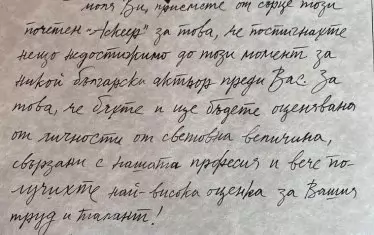 моля Ви, приемете от сърце този
почетен "Аскеер" за това, че постигнахте
нещо недостижимо до този момент за
никой български актьор преди Вас. За
това, че бяхте и ще бъдете оценявана
от личности от световна величина,
свързани с нашата професия и вече по-
лучихте най-висока оценка за Вашия
труд и талант!